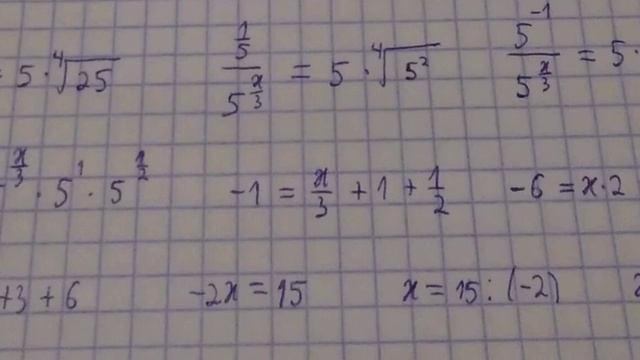 = 5 · ⁴√25    (1/5)/(5^(x/3)) = 5 · ⁴√(5²)    (5^(-1))/(5^(x/3)) = 5 ·
^(x/3) · 5^1 · 5^(1/2)    -1 = x/3 + 1 + 1/2    -6 = x·2
+3 + 6    -2x = 15    x = 15 : (-2)